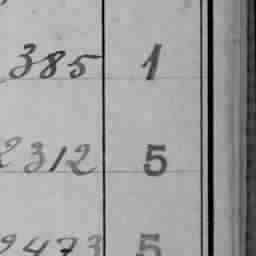 385 1
2312 5
2473 5